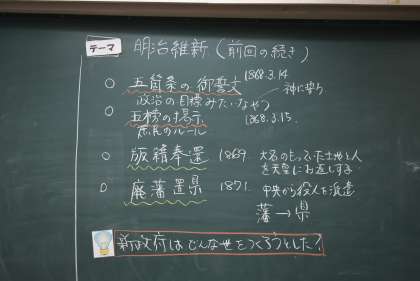 テーマ 明治維新(前回の続き)
五箇条の御誓文 1868.3.14
政治の目標みたいなやつ 神に誓う
五榜の掲示 1868.3.15.
庶民のルール
版籍奉還 1869. 大名のもっていた土地と人
を天皇にお返しする
廃藩置県 1871. 中央から役人を派遣
藩→県
新政府はどんな世をつくろうとした?